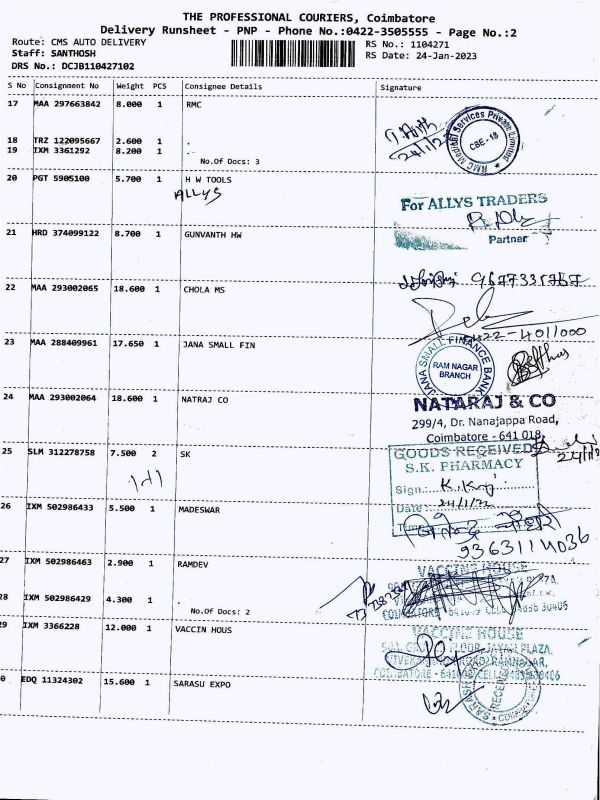 THE PROFESSIONAL COURIERS, Coimbatore
Delivery Runsheet - PNP - Phone No.:0422-3505555 - Page No.:2
Route: CMS AUTO DELIVERY
Staff: SANTHOSH
DRS No.: DCJB110427102
RS No.: 1104271
RS Date: 24-Jan-2023
S No Consignment No Weight PCS Consignee Details Signature
17 MAA 297663842 8.000 1 RMC
RMC Medient Services Private Limited
CBE-18
18 TRZ 122095667 2.600 1 .
19 IXM 3361292 8.200 1 .
No.Of Docs: 3
20 PGT 5905100 5.700 1 H W TOOLS
ALLYS
For ALLYS TRADERS
Partner
21 HRD 374099122 8.700 1 GUNVANTH HW
9677335767
22 MAA 293002065 18.600 1 CHOLA MS
0422-4011000
23 MAA 288409961 17.650 1 JANA SMALL FIN
JANA SMALL FINANCE BANK
RAM NAGAR
BRANCH
24 MAA 293002064 18.600 1 NATRAJ CO
NATARAJ & CO
299/4, Dr. Nanajappa Road,
Coimbatore - 641 018
25 SLM 312278758 7.500 2 SK
1+1
GOODS RECEIVED
S.K. PHARMACY
Sign:
Date: 24/1/23
Time
26 IXM 502986433 5.500 1 MADESWAR
9363114036
27 IXM 502986463 2.900 1 RAMDEV
VACCINE HOUSE
28 IXM 502986429 4.300 1 .
No.Of Docs: 2
29 IXM 3366228 12.000 1 VACCIN HOUS
VACCINE HOUSE
FLOOR, JAYAM PLAZA,
RAMNAGAR,
COIMBATORE
0 EDQ 11324302 15.600 1 SARASU EXPO